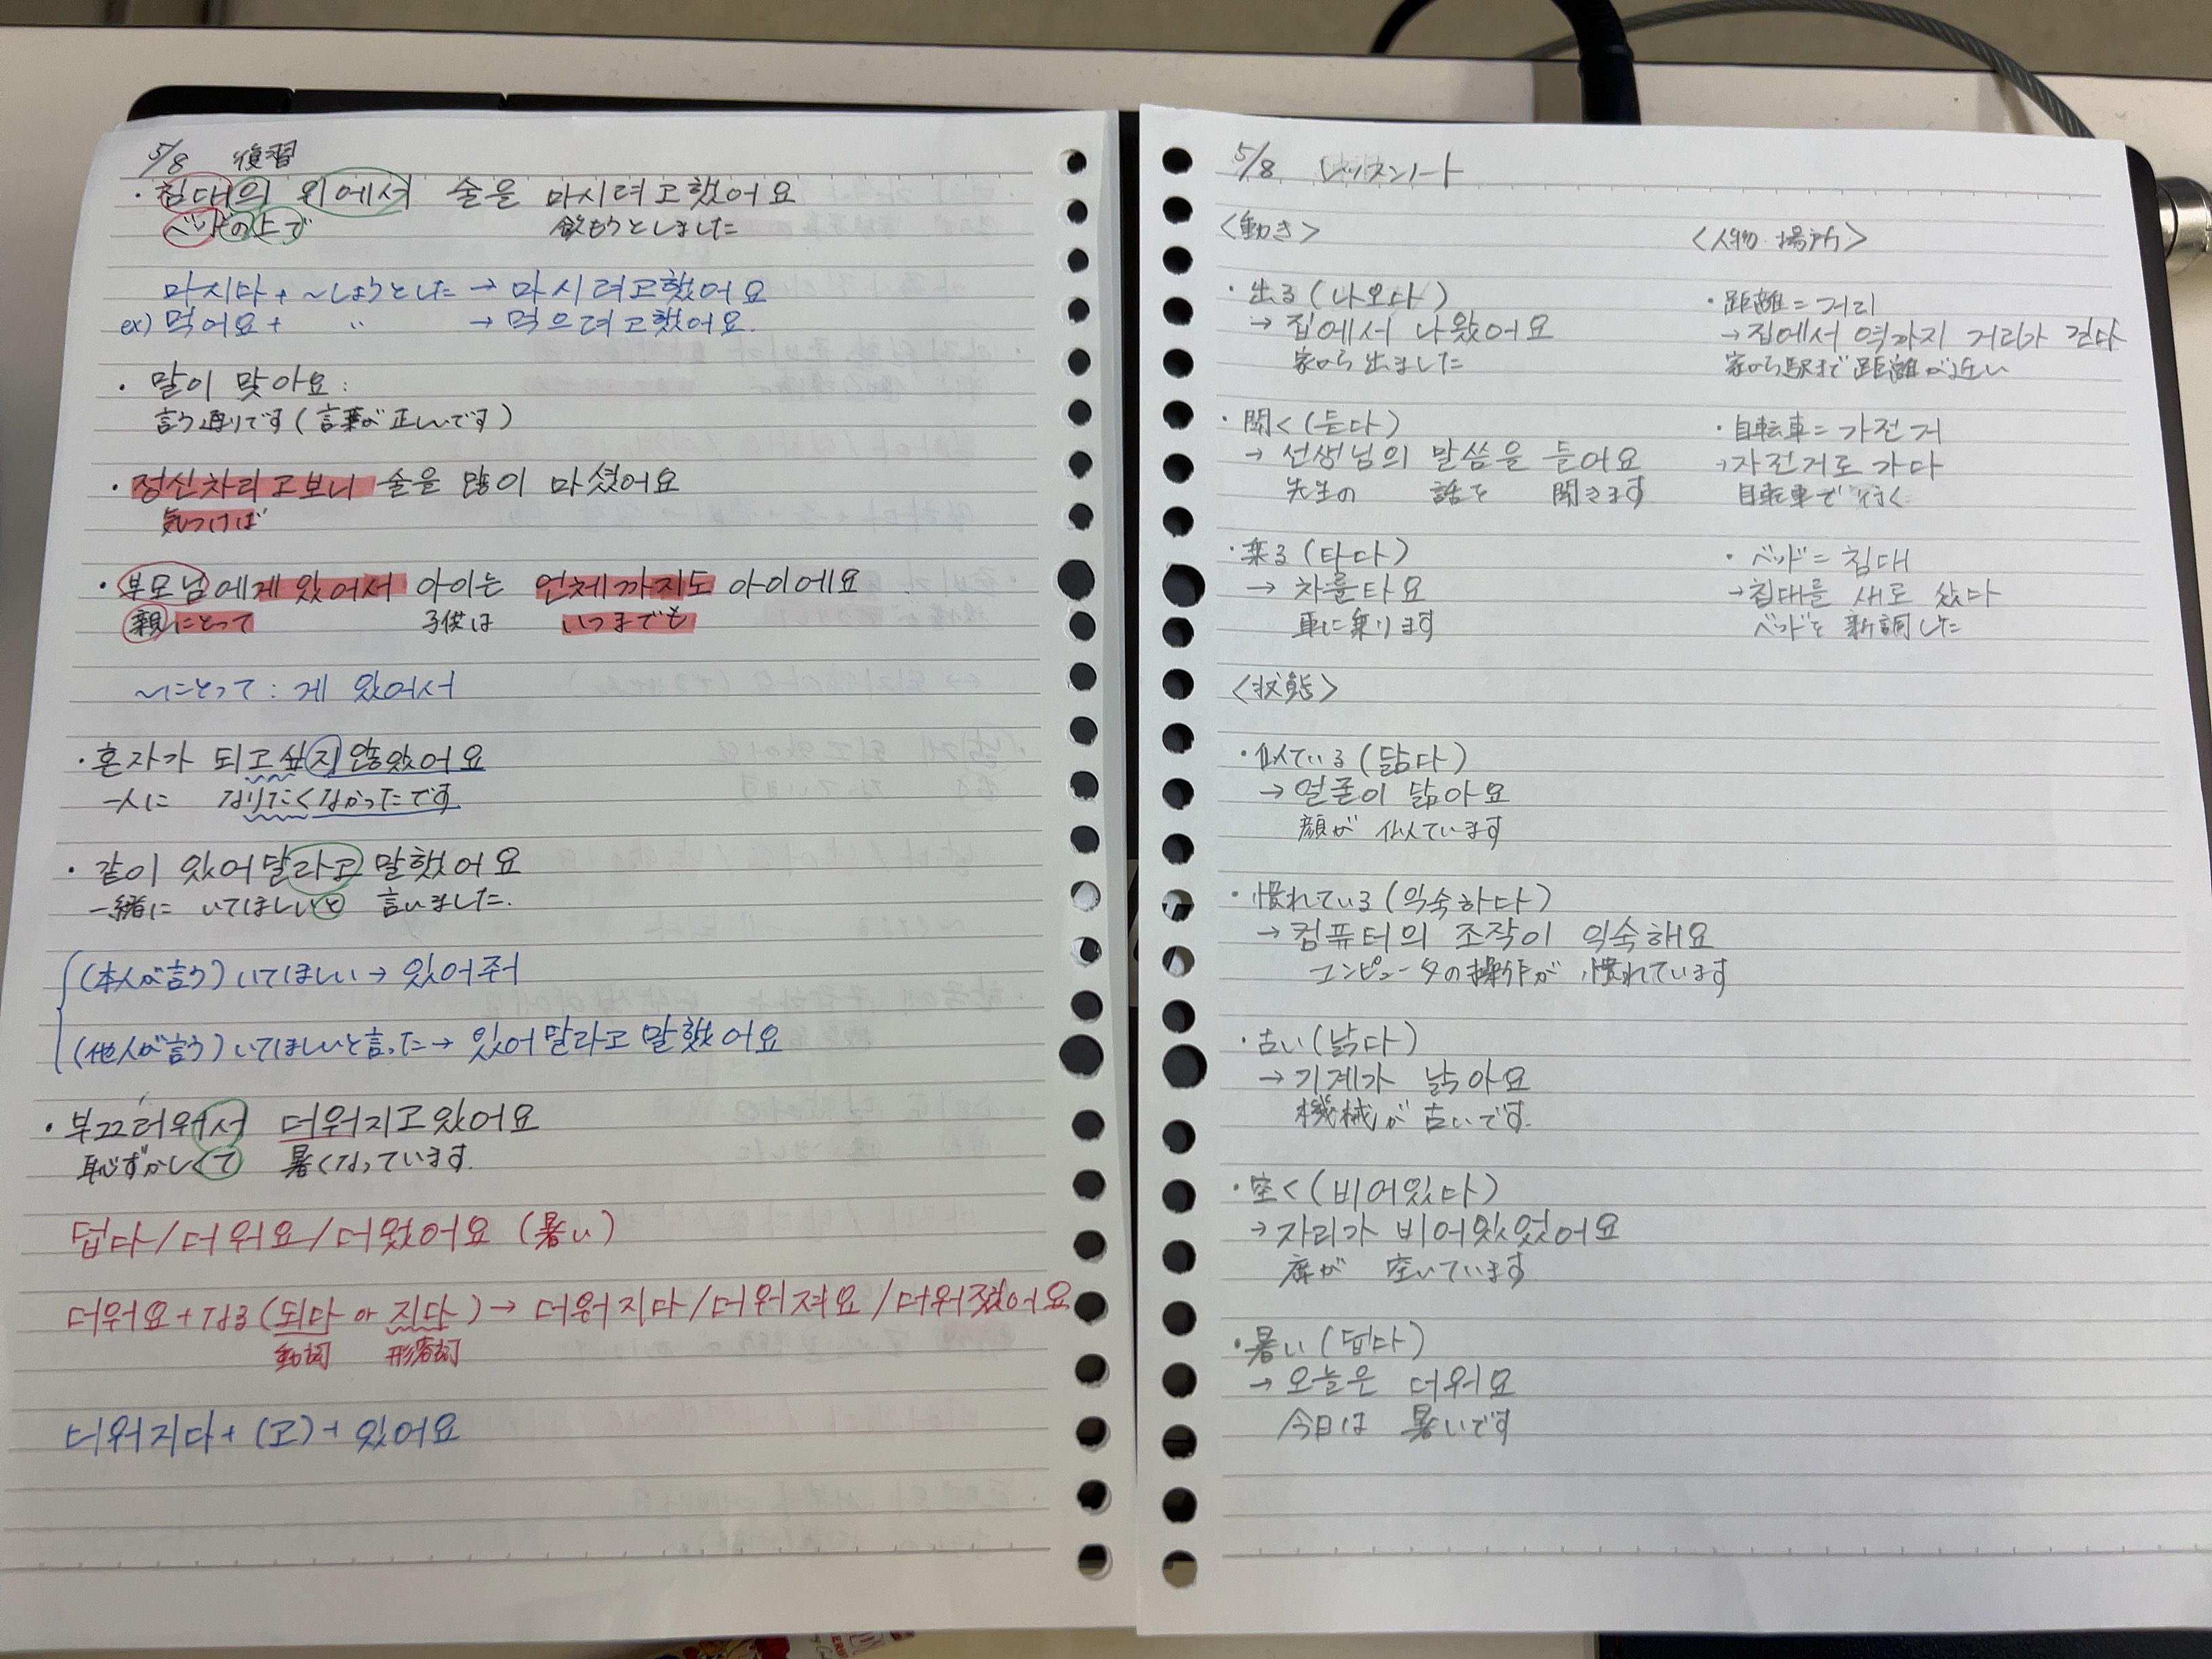 5/8 復習
・침대의 위에서 술을 마시려고했어요
ベッドの上で 飲もうとしました
마시다 + ~しようとした → 마시려고했어요
ex) 먹어요 + 〃 → 먹으려고했어요.
・말이 맞아요:
言う通りです(言葉が正しいです)
・정신차리고보니 술을 많이 마셨어요
気づけば
・부모님에게 있어서 아이는 언제까지도 아이에요
親にとって 子供は いつまでも
~にとって: 게 있어서
・혼자가 되고싶지 않았어요
一人に なりたくなかったです
・같이 있어달라고 말했어요
一緒に いてほしいと 言いました.
(本人が言う) いてほしい → 있어줘
(他人が言う) いてほしいと言った → 있어달라고 말했어요
・부끄러워서 더워지고있어요
恥ずかしくて 暑くなっています.
덥다/더워요/더웠어요 (暑い)
더워요+なる(되다 or 지다) → 더워지다/더워져요/더워졌어요
動詞 形容詞
더워지다+(고)+있어요
5/8 レッスンノート
<動き>
・出る(나오다)
→ 집에서 나왔어요
家から出ました
・聞く(듣다)
→ 선생님의 말씀을 들어요
先生の 話を 聞きます
・乗る(타다)
→ 차를타요
車に乗ります
<人物・場所>
・距離=거리
→집에서 역까지 거리가
家から駅まで距離が近い
・自転車=가전거
→자전거로 가다
自転車で行く
・ベッド=침대
→침대를 새로 샀다
ベッドを新調した
<状態>
・似ている(닮다)
→ 얼굴이 닮아요
顔が 似ています
・慣れている(익숙하다)
→ 컴퓨터의 조작이 익숙해요
コンピュータの操作が 慣れています
・古い(낡다)
→ 기계가 낡아요
機械が古いです.
・空く(비어있다)
→ 자리가 비어있었어요
席が 空いています
・暑い(덥다)
→ 오늘은 더워요
今日は 暑いです